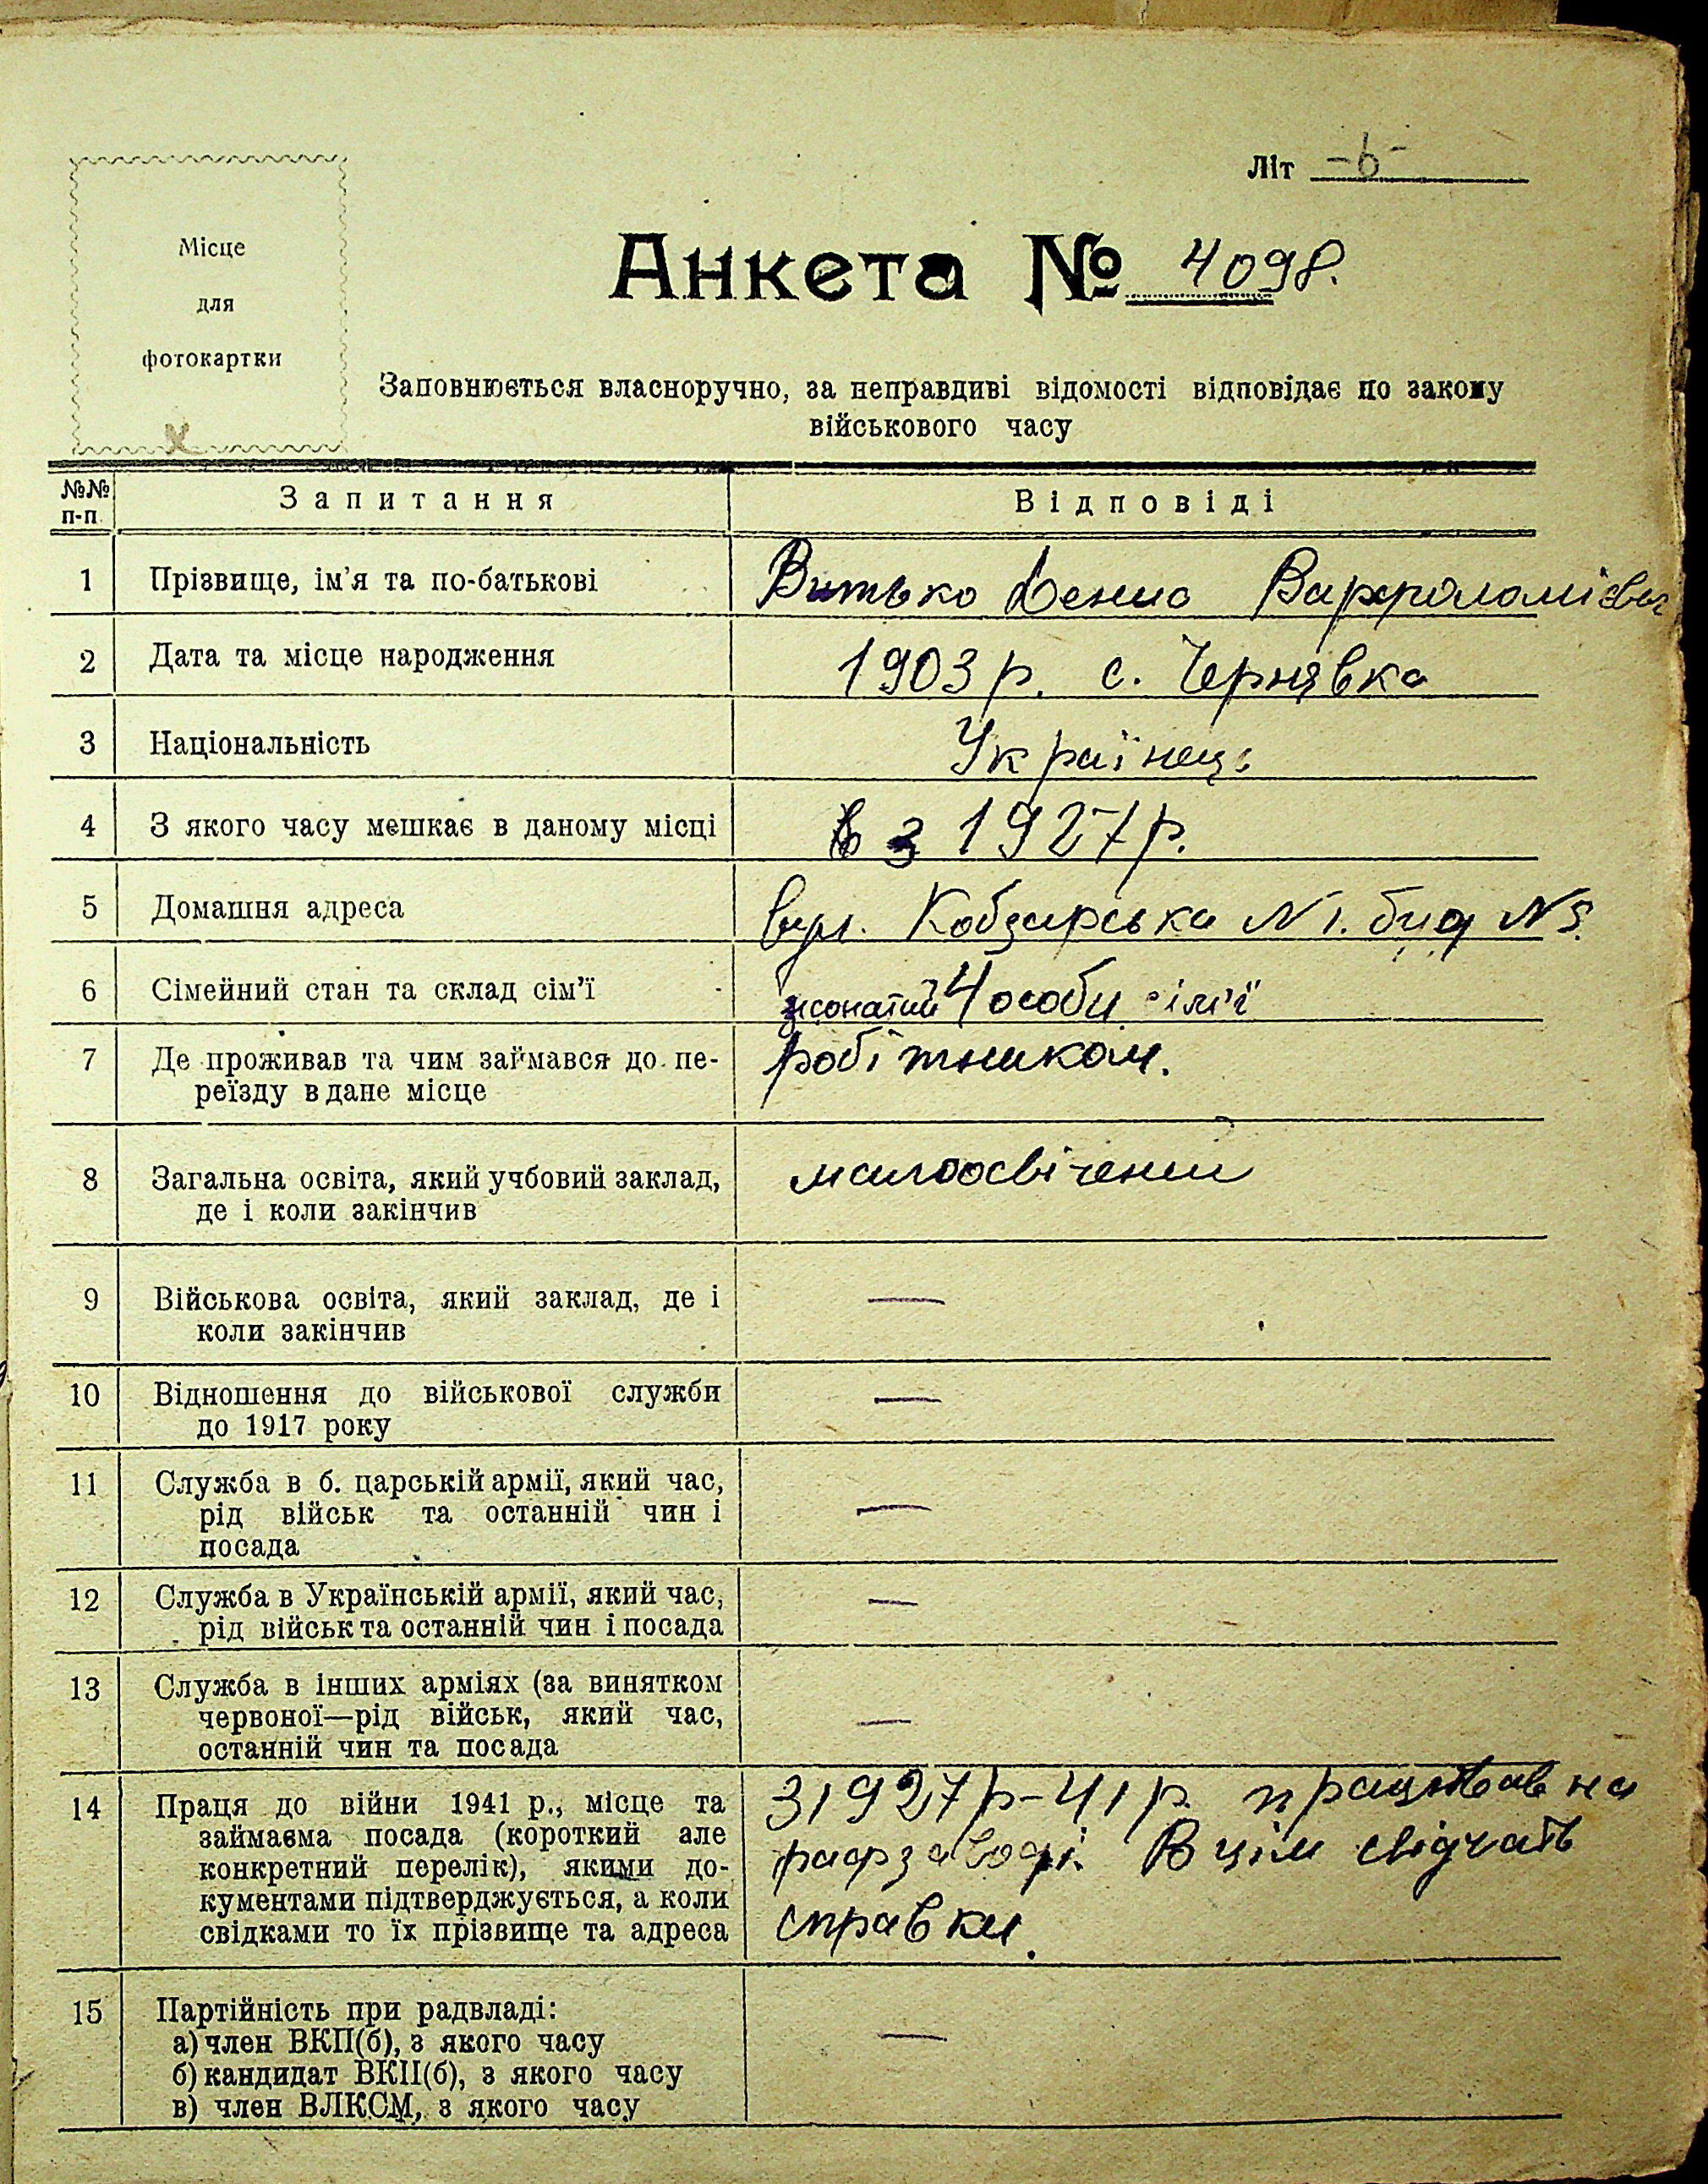 Літ -в-
Місце
для
фотокартки
Анкета № 4098.
Заповнюється власноручно, за неправдиві відомості відповідає по закону
військового часу
№№ п-п. Запитання Відповіді
1 Прізвище, ім'я та по-батькові Витько Денис
2 Дата та місце народження 1903 р. с. Чернявка
3 Національність Українець
4 З якого часу мешкає в даному місці з 1927 р.
5 Домашня адреса вул. Кобзарська N 1. буд N
6 Сімейний стан та склад сім'ї жонатий 4 особи сім'ї
7 Де проживав та чим займався до пе-
реїзду в дане місце
робітником.
8 Загальна освіта, який учбовий заклад,
де і коли закінчив
малоосвічений
9 Військова освіта, який заклад, де і
коли закінчив
—
10 Відношення до військової служби
до 1917 року
—
11 Служба в б. царській армії, який час,
рід військ та останній чин і
посада
—
12 Служба в Українській армії, який час,
рід військ та останній чин і посада
—
13 Служба в інших арміях (за винятком
червоної—рід військ, який час,
останній чин та посада
—
14 Праця до війни 1941 р., місце та
займаєма посада (короткий але
конкретний перелік), якими до-
кументами підтверджується, а коли
свідками то їх прізвище та адреса
З 1927 р-41 р. працював на
рафзаводі. В цім свідчать
справки.
15 Партійність при радвладі:
а) член ВКП(б), з якого часу
б) кандидат ВКП(б), з якого часу
в) член ВЛКСМ, з якого часу
—